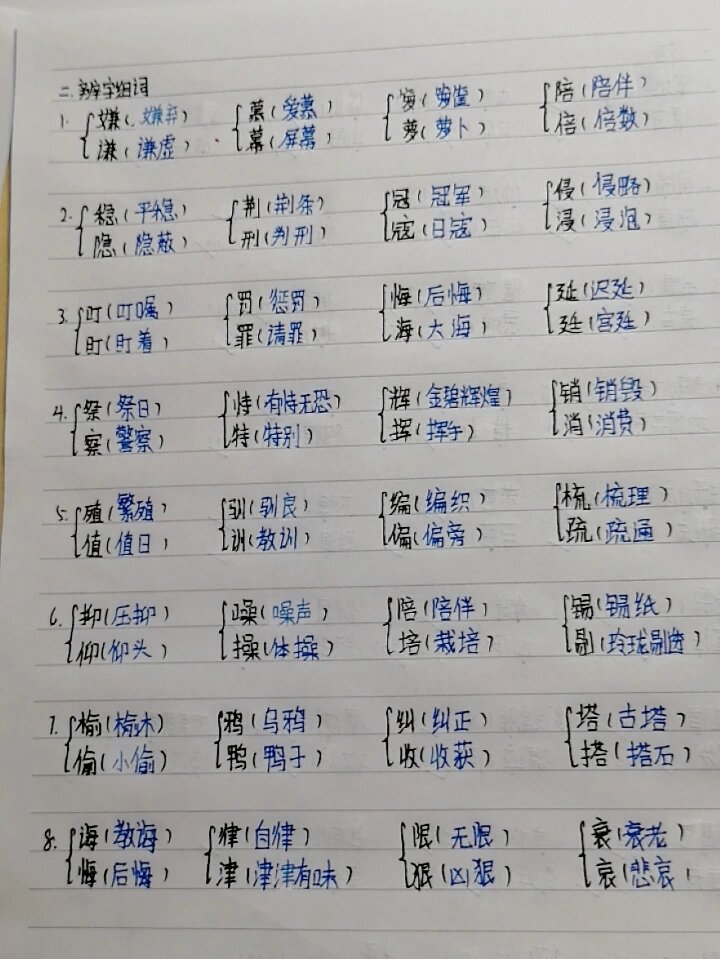 二、辨字组词
1. 嫌(嫌弃) 慕(爱慕) 箩(箩筐) 陪(陪伴)
谦(谦虚) 幕(屏幕) 萝(萝卜) 倍(倍数)
2. 稳(平稳) 荆(荆条) 冠(冠军) 侵(侵略)
隐(隐蔽) 刑(判刑) 寇(日寇) 浸(浸泡)
3. 叮(叮嘱) 罚(惩罚) 悔(后悔) 延(迟延)
盯(盯着) 罪(请罪) 海(大海) 廷(宫廷)
4. 祭(祭日) 恃(有恃无恐) 辉(金碧辉煌) 销(销毁)
察(警察) 特(特别) 挥(挥手) 消(消费)
5. 殖(繁殖) 驯(驯良) 编(编织) 梳(梳理)
值(值日) 训(教训) 偏(偏旁) 疏(疏通)
6. 抑(压抑) 噪(噪声) 陪(陪伴) 锡(锡纸)
仰(仰头) 操(体操) 培(栽培) 剔(玲珑剔透)
7. 榆(榆木) 鸦(乌鸦) 纠(纠正) 塔(古塔)
偷(小偷) 鸭(鸭子) 收(收获) 搭(搭石)
8. 诲(教诲) 律(自律) 限(无限) 衰(衰老)
悔(后悔) 津(津津有味) 狠(凶狠) 哀(悲哀)